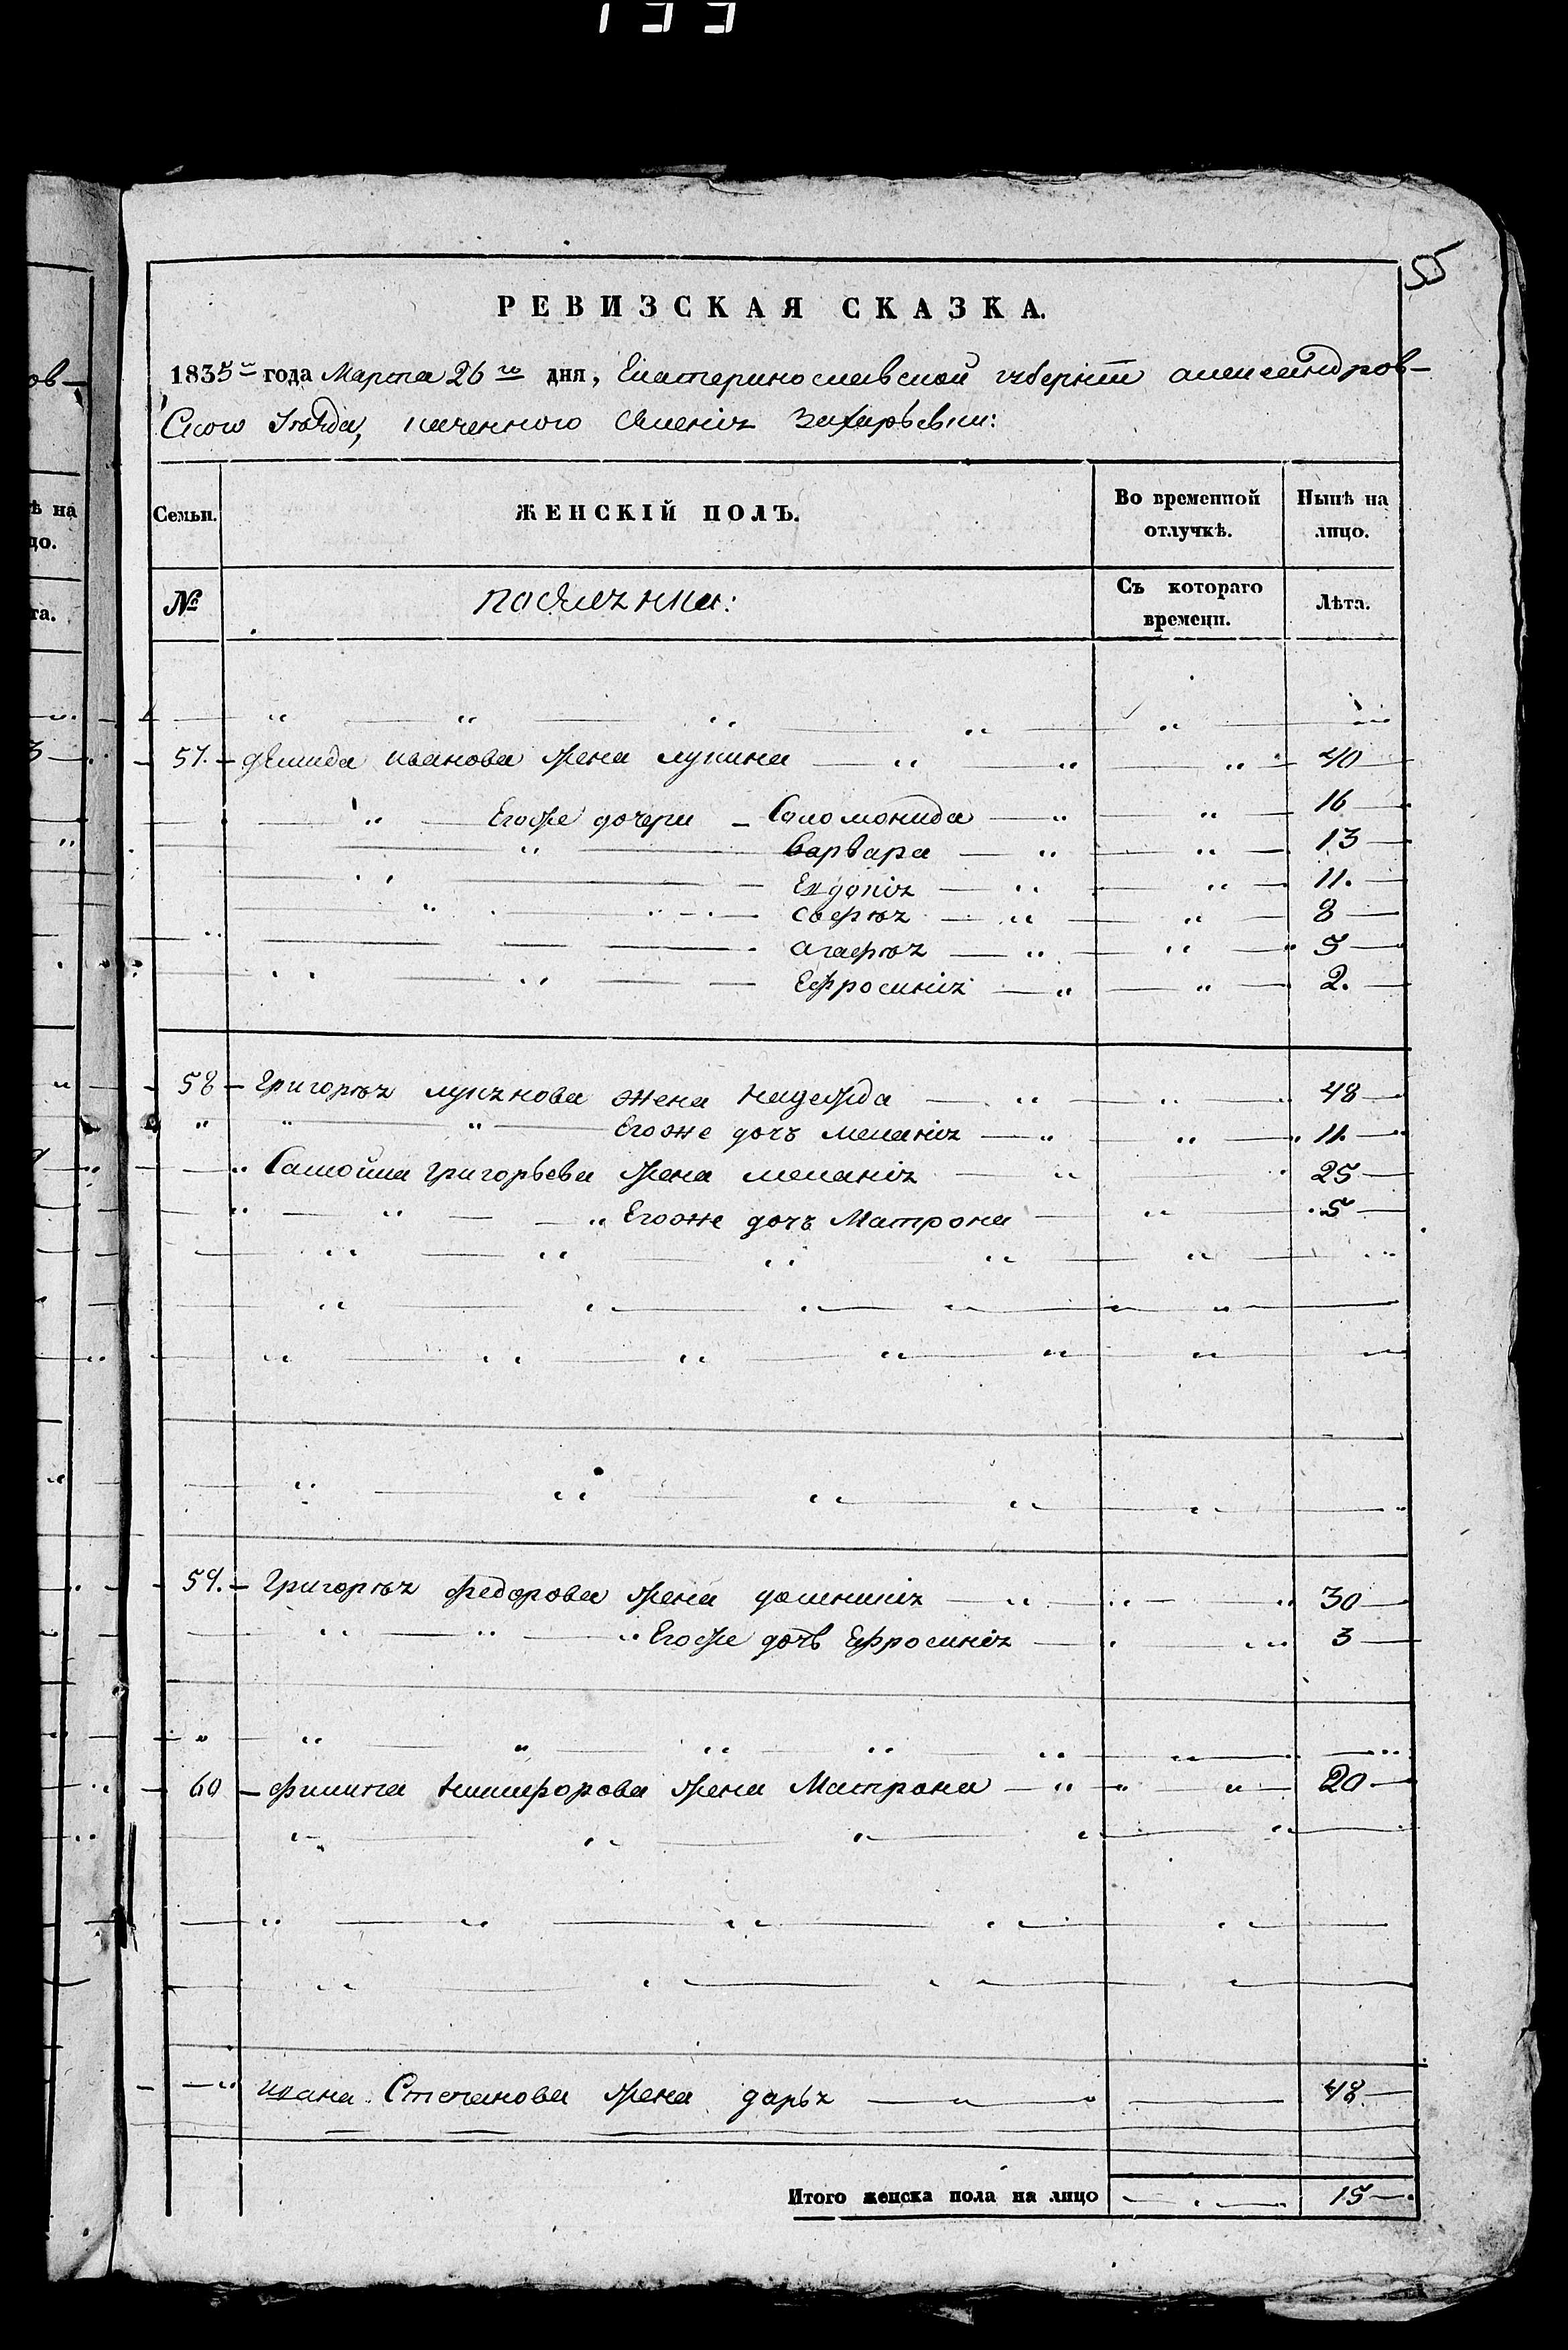 133
55
РЕВИЗСКАЯ СКАЗКА.
1835 года Марта 26 го дня, Екатеринославской губернiи александров-
Скою уѣзда, казенного Селенiя Захарьевки:
Семьи. ЖЕНСКIЙ ПОЛЪ. Во временной отлучкѣ. Нынѣ на лицо.
№ поселяники: Съ котораго времени. Лѣта.
57. Демида иванова жена лукина 40
Егоже дочери Соломонида 16
варвара 13
Евдокiя 11.
Софiя 8
агафiя 5
Ефросинiя 2.
58 Григорiя лукянова жена надежда 48
Егоже дочъ меланiя 11
Самойла григорьева жена меланiя 25
Егоже дочъ Матрона 5
59. Григорiя федорова жена домникiя 30
Егоже дочь Ефросинiя 3
60 филипа никифорова жена Матрона 20
ивана Степанова жена дарья 48
Итого женска пола на лицо 15